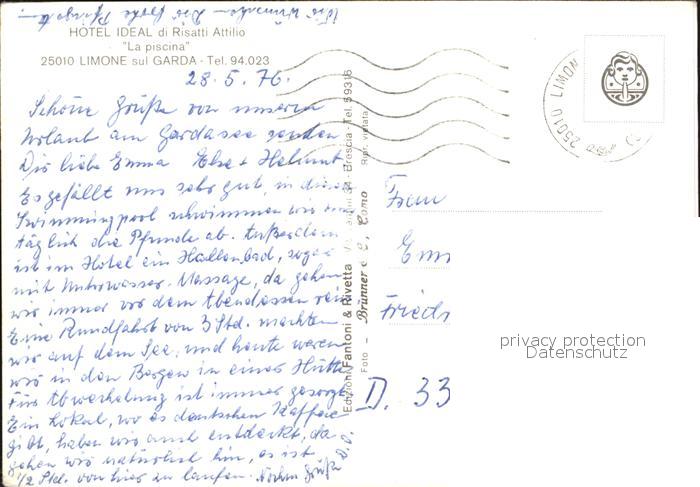 Wir wünschen Dir frohe Pfingsten
HOTEL IDEAL di Risatti Attilio
"La piscina"
25010 LIMONE sul GARDA - Tel. 94.023
28.5.76.
Schöne Grüße von unserm
Urlaub am Gardasee senden
Dir liebe Emma Else + Helmut
Es gefällt uns sehr gut, in diesem
Swimmingpool schwimmen wir uns
täglich die Pfunde ab. Außerdem
ist im Hotel ein Hallenbad, sogar
mit Unterwasser-Massage, da gehen
wir immer vor dem Abendessen rein
Eine Rundfahrt von 3 Std. machten
wir auf dem See, und heute waren
wir in den Bergen in einer Hütte
Für Abwechslung ist immer gesorgt
Ein Lokal, wo es deutschen Kaffee
gibt, haben wir auch entdeckt, da
gehen wir natürlich hin, es ist
1/2 Std. von hier zu laufen. Nochm. Grüße D.O.
Edizioni Fantoni & Rivetta Brescia - Tel. 59316
Foto - Brünner & C., Como Ripr. vietata
25010 LIMON
Frau
Em
Friedr
D. 33
privacy protection
Datenschutz